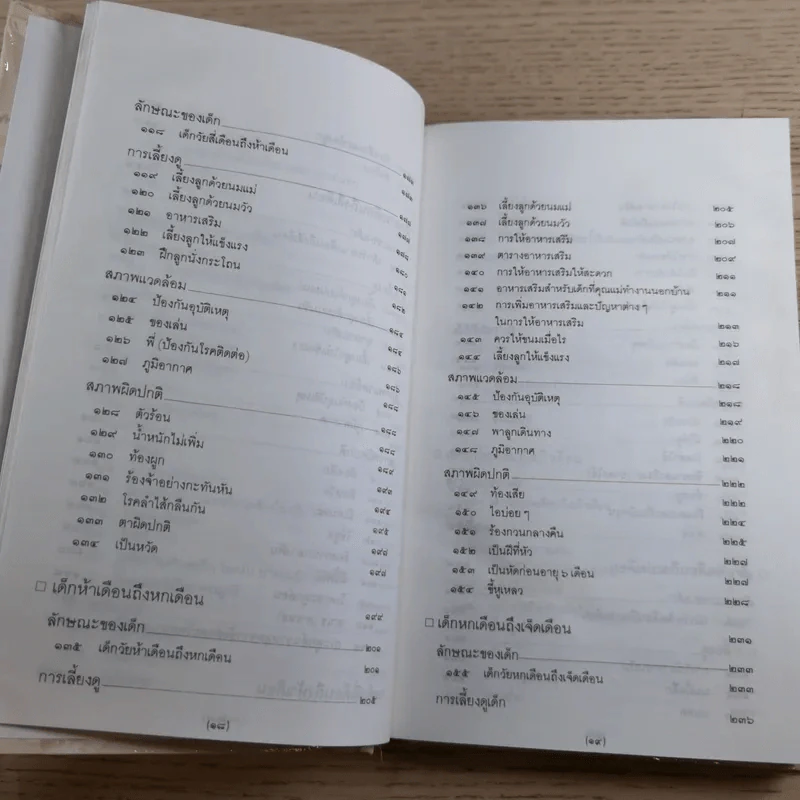 ลักษณะของเด็ก
๑๑๘ เด็กวัยสี่เดือนถึงห้าเดือน
การเลี้ยงดู
๑๑๙ เลี้ยงลูกด้วยนมแม่
๑๒๐ เลี้ยงลูกด้วยนมวัว
๑๒๑ อาหารเสริม ๑๘๐
๑๒๒ เลี้ยงลูกให้แข็งแรง
๑๒๓ ฝึกลูกนั่งกระโถน ๑๘๒
สภาพแวดล้อม ๑๘๔
๑๒๔ ป้องกันอุบัติเหตุ ๑๘๔
๑๒๕ ของเล่น ๑๘๖
๑๒๖ พี่ (ป้องกันโรคติดต่อ) ๑๘๖
๑๒๗ ภูมิอากาศ ๑๘๘
สภาพผิดปกติ ๑๘๘
๑๒๘ ตัวร้อน ๑๘๘
๑๒๙ น้ำหนักไม่เพิ่ม ๑๘๙
๑๓๐ ท้องผูก ๑๙๓
๑๓๑ ร้องจ้าอย่างกะทันหัน ๑๙๔
๑๓๒ โรคลำไส้กลืนกัน ๑๙๕
๑๓๓ ตาผิดปกติ ๑๙๘
๑๓๔ เป็นหวัด ๑๙๘
เด็กห้าเดือนถึงหกเดือน ๑๙๙
ลักษณะของเด็ก ๒๐๑
๑๓๕ เด็กวัยห้าเดือนถึงหกเดือน ๒๐๑
การเลี้ยงดู ๒๐๕
(๑๘)
๑๓๖ เลี้ยงลูกด้วยนมแม่ ๒๐๕
๑๓๗ เลี้ยงลูกด้วยนมวัว ๒๐๖
๑๓๘ การให้อาหารเสริม ๒๐๗
๑๓๙ ตารางอาหารเสริม ๒๐๙
๑๔๐ การให้อาหารเสริมให้สะดวก ๒๑๑
๑๔๑ อาหารเสริมสำหรับเด็กที่คุณแม่ทำงานนอกบ้าน ๒๑๑
๑๔๒ การเพิ่มอาหารเสริมและปัญหาต่าง ๆ
ในการให้อาหารเสริม ๒๑๓
๑๔๓ ควรให้ขนมเมื่อไร ๒๑๖
๑๔๔ เลี้ยงลูกให้แข็งแรง ๒๑๗
สภาพแวดล้อม ๒๑๘
๑๔๕ ป้องกันอุบัติเหตุ ๒๑๘
๑๔๖ ของเล่น ๒๑๙
๑๔๗ พาลูกเดินทาง ๒๒๐
๑๔๘ ภูมิอากาศ ๒๒๑
สภาพผิดปกติ ๒๒๒
๑๔๙ ท้องเสีย ๒๒๒
๑๕๐ ไอบ่อย ๆ ๒๒๔
๑๕๑ ร้องกวนกลางคืน ๒๒๕
๑๕๒ เป็นฝีที่หัว ๒๒๗
๑๕๓ เป็นหัดก่อนอายุ ๖ เดือน ๒๒๗
๑๕๔ ขี้หูเหลว ๒๒๘
เด็กหกเดือนถึงเจ็ดเดือน ๒๓๑
ลักษณะของเด็ก ๒๓๓
๑๕๕ เด็กวัยหกเดือนถึงเจ็ดเดือน ๒๓๓
การเลี้ยงดูเด็ก ๒๓๖
(๑๙)